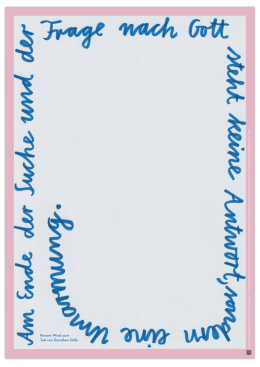 Am Ende der Suche und der
Frage nach Gott
steht keine Antwort, sondern
eine Umarmung.
Renate Wind zum
Tod von Dorothee Sölle